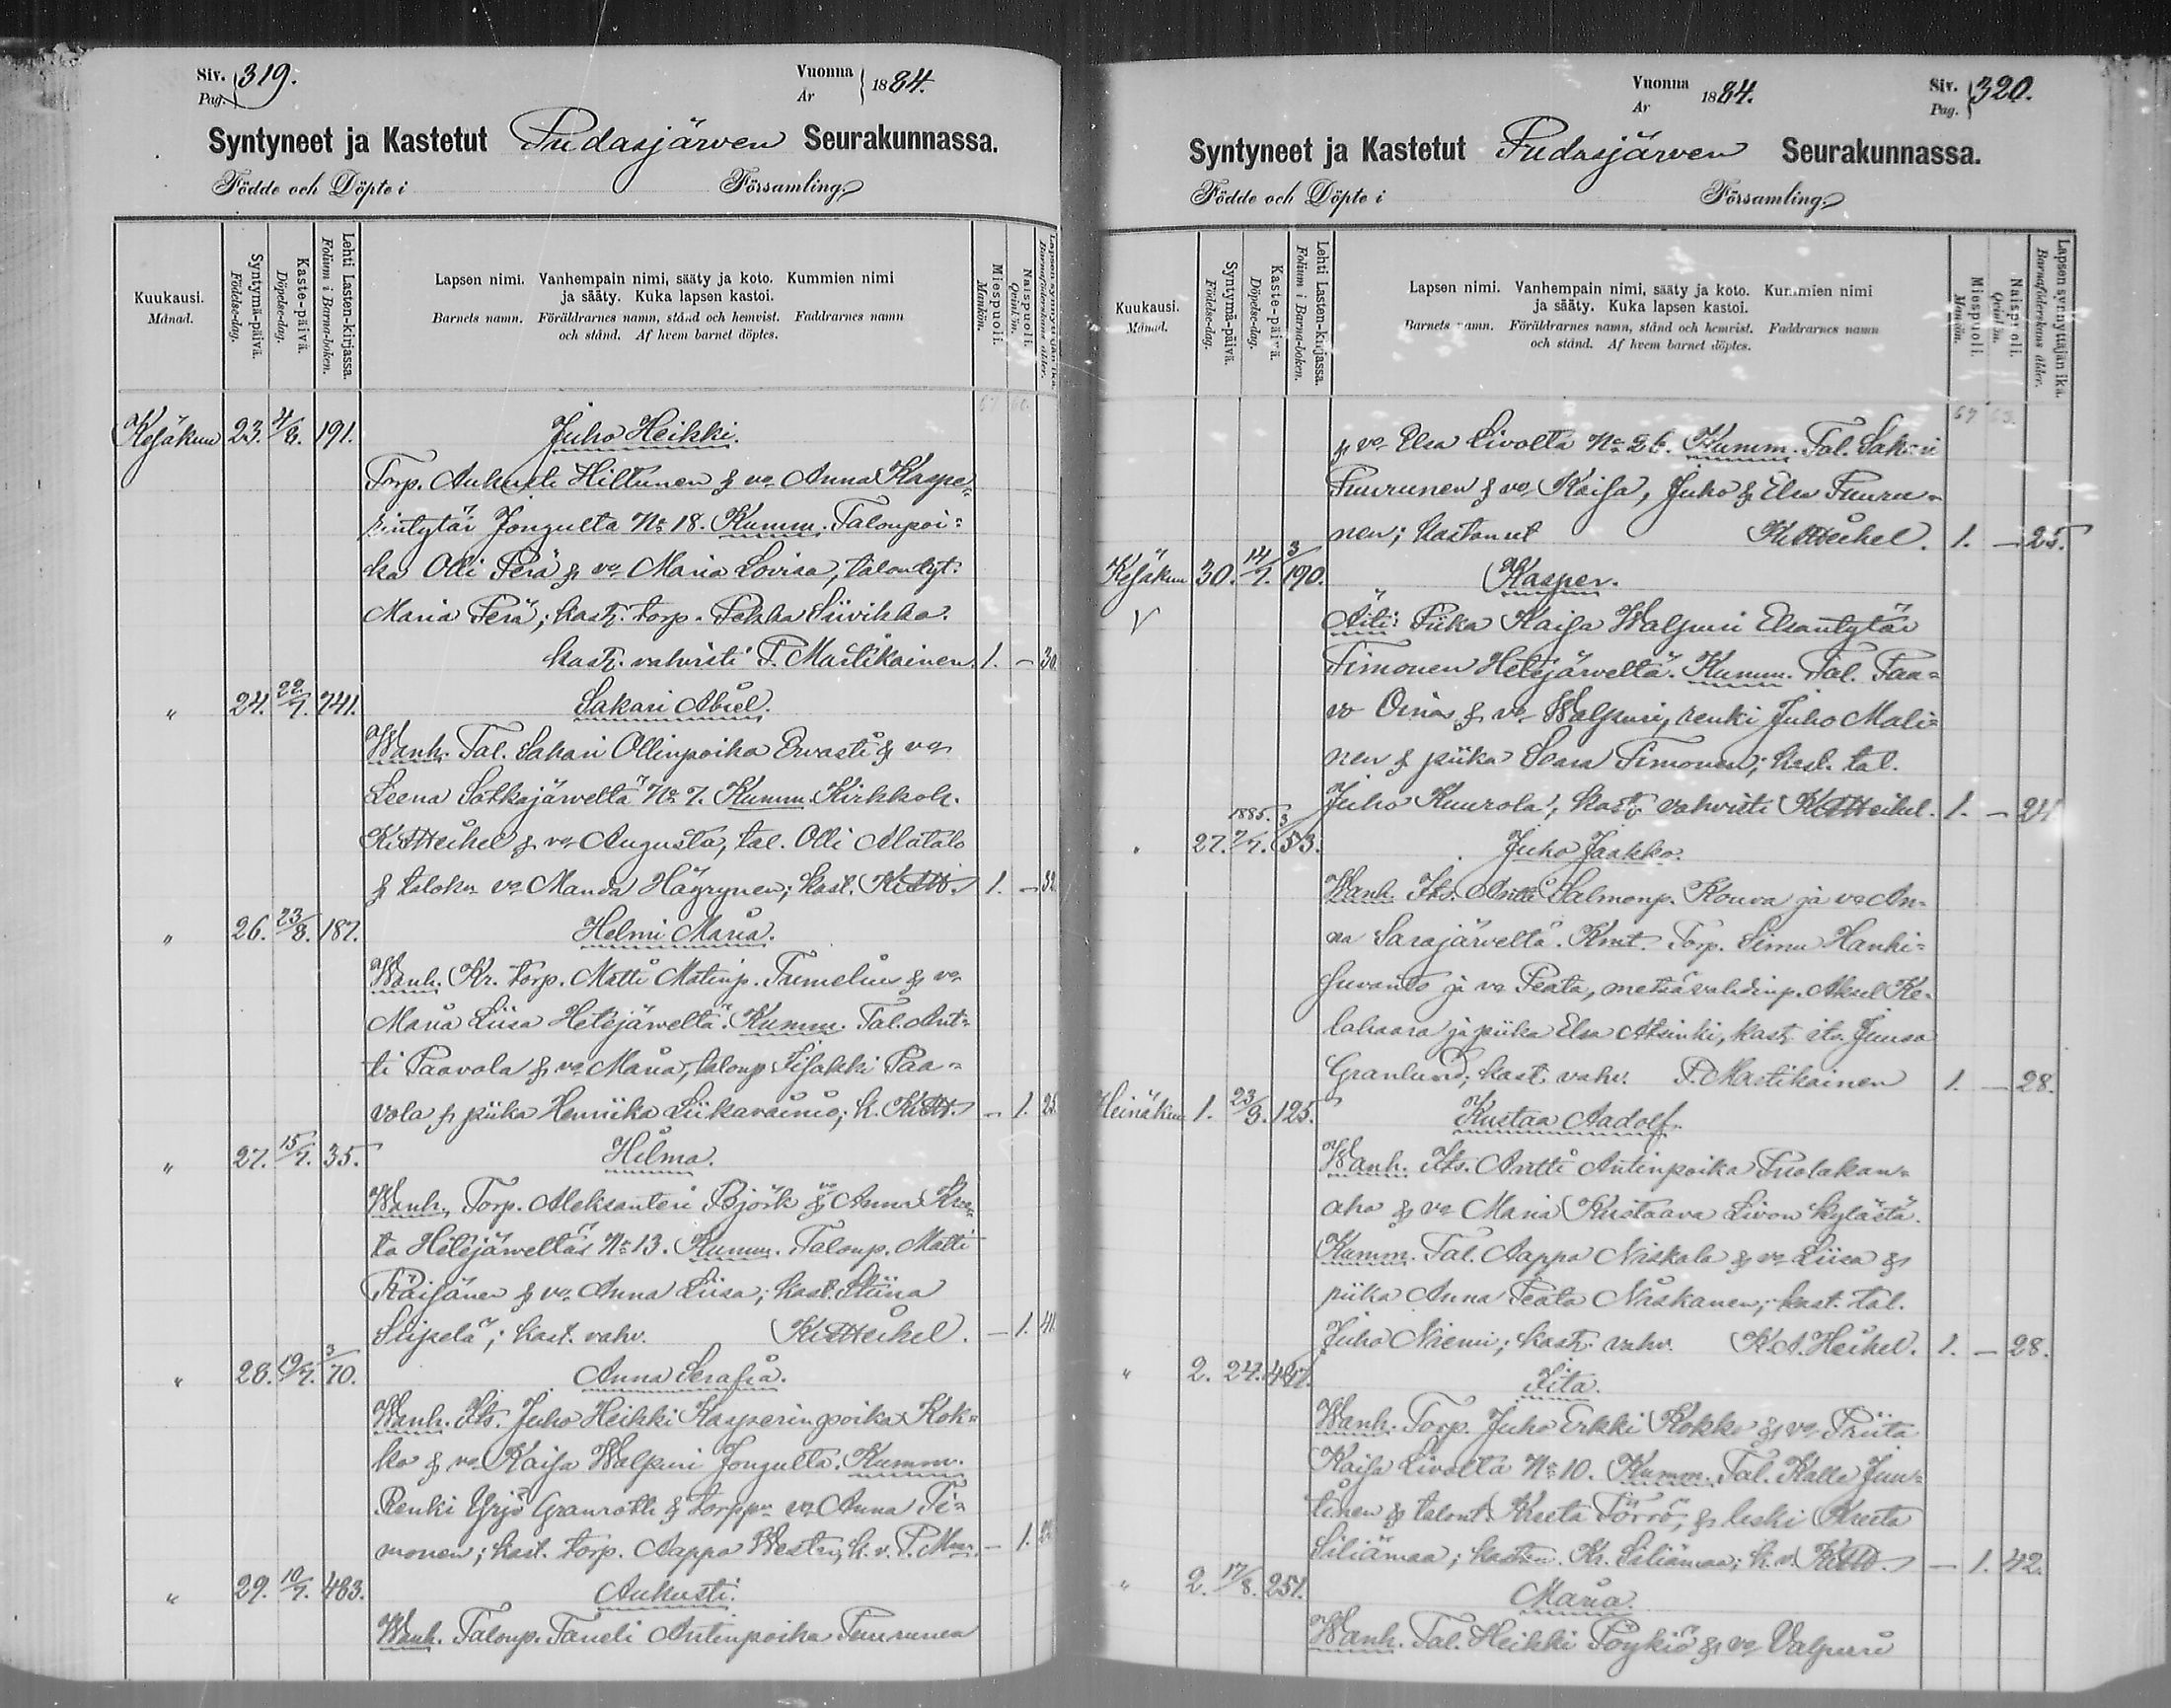 Siv. 319.
Pag.
Vuonna 1884.
Ar
Syntyneet ja Kastetut Pudasjärven Seurakunnassa.
Födde och Döpte i Församling.
Kuukausi.
Månad.
Syntymä-päivä.
Födelse-dag.
Kaste-päivä.
Döpelse-dag.
Lehti Lasten-kirjassa.
Folium i Barna-boken.
Lapsen nimi. Vanhempain nimi, sääty ja koto. Kummien nimi
ja sääty. Kuka lapsen kastoi.
Barnets namn. Föräldrarnes namn, stånd och hemvist. Faddrarnes namn
och stånd. Af hvem barnet döptes.
Miespuoli.
Mankön.
Naispuoli.
Qvinkön.
Lapsen synnyttäjän ikä.
Barnaföderskans ålder.
Kesäkuu 23. 4/8. 191. Juho Heikki.
Torp. Aukusti Hiltunen & vo Anna Kaspe-
rintytär Jongulta No 18. Kumm. Talonpoi-
ka Olli Perä & vo Maria Lovisa, talontyt:
Maria Perä; kast. torp. Pekka Siivikko.
kast. vahvisti P. Mastikainen 1. – 30.
" 24. 22/7. 741. Sakari Abiel.
Wanh. Tal. Sakari Ollinpoika Ervasti & vo
Leena Sotkajärveltä No 7. Kumm. Kirkkoh.
KAHeikel & vo Augusta, tal. Olli Alatalo
& talok. vo Manda Häyrynen; kast. KAH. 1. –
" 26. 23/8. 187. Helmi Maria.
Wanh. Kr. torp. Matti Matinp. Tumelius & vo
Maria Liisa Hetejärveltä. Kumm. Tal. Ant-
ti Paavola & vo Maria, talonp. Iisakki Paa-
vola & piika Henriika Liikavainio; k. KAH. – 1. 25.
" 27. 15/7. 35. Hilma.
Wanh. Torp. Aleksanteri Björk & vo Anna Kree-
ta Hetejärveltä No 13. Kumm. Talonp. Matti
Räisänen & vo Anna Liisa; kast. Stiina
Siipelä; kast. vahv. KAHeikel. – 1. 41.
" 28. 19/7. 3/70. Anna Serafia.
Wanh. Its. Juho Heikki Kasperinpoika Kok-
ko & vo Kaisa Walpuri Jongulta. Kumm.
Renki Yrjö Granroth & torpp. vo Anna Ti-
monen; kast. torp. Aappo Westri; k. v. P. Mn. – 1.
" 29. 10/7. 483. Aukusti.
Wanh. Talonp. Taneli Antinpoika Puurunen
Vuonna 1884.
Ar
Siv. 320.
Pag.
Syntyneet ja Kastetut Pudasjärven Seurakunnassa.
Födde och Döpte i Församling.
Kuukausi.
Månad.
Syntymä-päivä.
Födelse-dag.
Kaste-päivä.
Döpelse-dag.
Lehti Lasten-kirjassa.
Folium i Barna-boken.
Lapsen nimi. Vanhempain nimi, sääty ja koto. Kummien nimi
ja sääty. Kuka lapsen kastoi.
Barnets namn. Föräldrarnes namn, stånd och hemvist. Faddrarnes namn
och stånd. Af hvem barnet döptes.
Miespuoli.
Mankön.
Naispuoli.
Qvinkön.
Lapsen synnyttäjän ikä.
Barnaföderskans ålder.
& vo Elsa Livolta No 26. Kumm. Tal. Sakari
Puurunen & vo Kaisa, Juho & Elsa Puuru-
nen; kastanut KAHeikel. 1. – 25.
Kesäkuu 30. 14/7. 3/190. Kasper.
V Äiti: Piika Kaisa Walpuri Elsantytär
Timonen Hetejärveltä. Kumm. Tal. Paa-
vo Oinas & vo Walpuri, renki Juho Mali-
nen & piika Saara Timonen; kast. tal.
Juho Kuurola; kast. vahvisti KAHeikel. 1. – 24.
27. 1885. 7/7. 3/53. Juho Jaakko.
Wanh. Its. Antti Salmonp. Kouva ja vo An-
na Sarajärveltä. Kmt. Torp. Simu Hanhi-
suvanto ja vo Peata, metsävahdinp. Aksel Ke-
lahaara ja piika Elsa Atsinki, kast. its. Junsa
Granlund; kast. vahv. P. Mastikainen 1. – 28.
Heinäkuu 1. 23/9. 125. Kustaa Aadolf.
Wanh. Its. Antti Antinpoika Puolakan-
aho & vo Maria Kustaava Livon kylästä.
Kumm. Tal. Aappo Niskala & vo Liisa &
piika Anna Peata Niskanen; kast. tal.
Juho Niemi; kast. vahv. K.A. Heikel. 1. – 28.
" 2. 27. 447. Iita.
Wanh. Torp. Juho Erkki Kokko & vo Priita
Kaisa Livolta No 10. Kumm. Tal. Kalle Juu-
tinen & talont. Kreeta Törrö, & leski Kreeta
Siliämaa; kastan. Kr. Siliämaa; k. v. KAH. – 1. 42.
" 2. 17/8. 251. Maria.
Wanh. Tal. Heikki Pöykiö & vo Valpuri